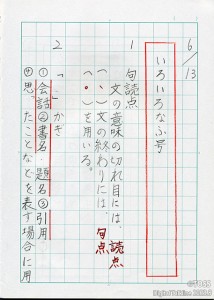 6/13
いろいろなふ号
1 句読点
文の意味の切れ目には、読点
(、)文の終わりには、句点
(。)を用いる。
2 「」かぎ
①会話②書名・題名③引用
④思ったことなどを表す場合に用